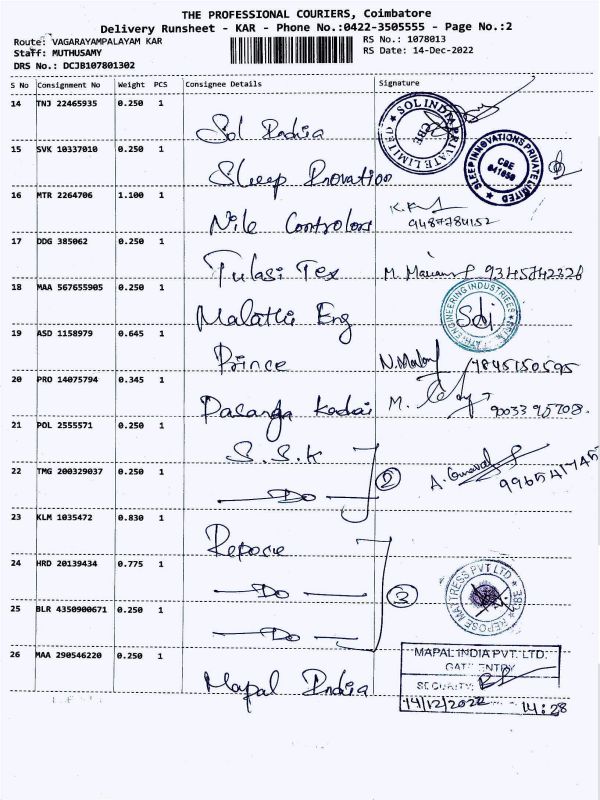 THE PROFESSIONAL COURIERS, Coimbatore
Delivery Runsheet - KAR - Phone No.:0422-3505555 - Page No.:2
Route: VAGARAYAMPALAYAM KAR
RS No.: 1078013
Staff: MUTHUSAMY
RS Date: 14-Dec-2022
DRS No.: DCJB107801302
S No Consignment No Weight PCS Consignee Details Signature
14 TNJ 22465935 0.250 1 Sol India
SOL INDIA PRIVATE LIMITED CBE
15 SVK 10337010 0.250 1 Sleep Inovation
SLEEP INNOVATIONS PRIVATE LIMITED CBE 641659
16 MTR 2264706 1.100 1 Nile Controlors
9487784152
17 DDG 385062 0.250 1 Tulasi Tex M. 9345842328
18 MAA 567655905 0.250 1 Malathi Eng
ENGINEERING INDUSTRIEES
19 ASD 1158979 0.645 1 Prince 9845150595
20 PRO 14075794 0.345 1 Pasanga Kadai M. 90033 95708.
21 POL 2555571 0.250 1 S.S.K
22 TMG 200329037 0.250 1 — Do — 2 A. 996541745
23 KLM 1035472 0.830 1 Repose
24 HRD 20139434 0.775 1 — Do — 3
REPOSE MATTRESS PVT LTD CBE
25 BLR 4350900671 0.250 1 — Do —
26 MAA 290546220 0.250 1 Mapal India
MAPAL INDIA PVT. LTD.
GATE ENTRY
SECURITY:
14/12/2022 14:28